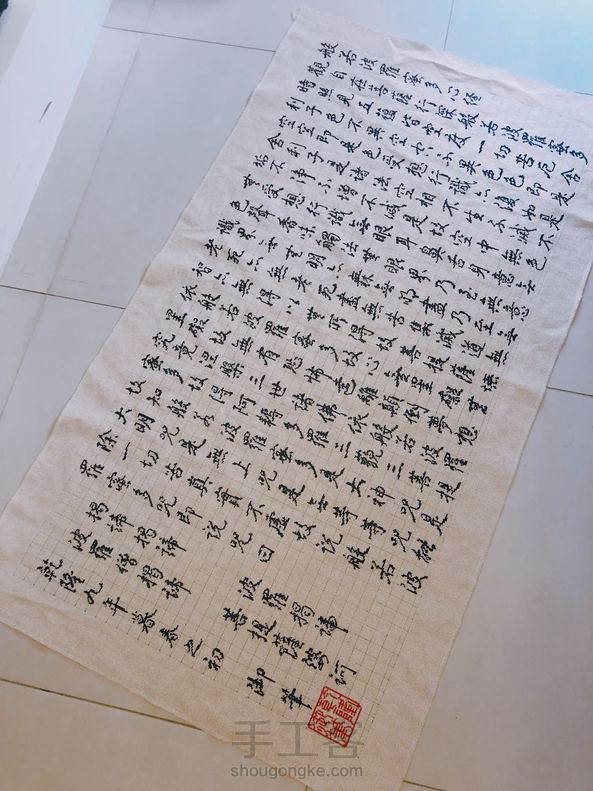 般若波羅蜜多心經
觀自在菩薩行深般若波羅蜜多
時照見五蘊皆空度一切苦厄舍
利子色不異空空不異色色即是
空空即是色受想行識亦復如是
舍利子是諸法空相不生不滅不
垢不淨不增不減是故空中無色
無受想行識無眼耳鼻舌身意無
色聲香味觸法無眼界乃至無意
識界無無明亦無無明盡乃至無
老死亦無老死盡無苦集滅道無
智亦無得以無所得故菩提薩埵
依般若波羅蜜多故心無罣礙無
罣礙故無有恐怖遠離顛倒夢想
究竟涅槃三世諸佛依般若波羅
蜜多故得阿耨多羅三藐三菩提
故知般若波羅蜜多是大神咒是
大明咒是無上咒是無等等咒能
除一切苦真實不虛故說般若波
羅蜜多咒即說咒曰
揭諦揭諦 波羅揭諦
波羅僧揭諦 菩提薩婆訶
乾隆九年歲春之初 御筆
手工客
shougongke.com